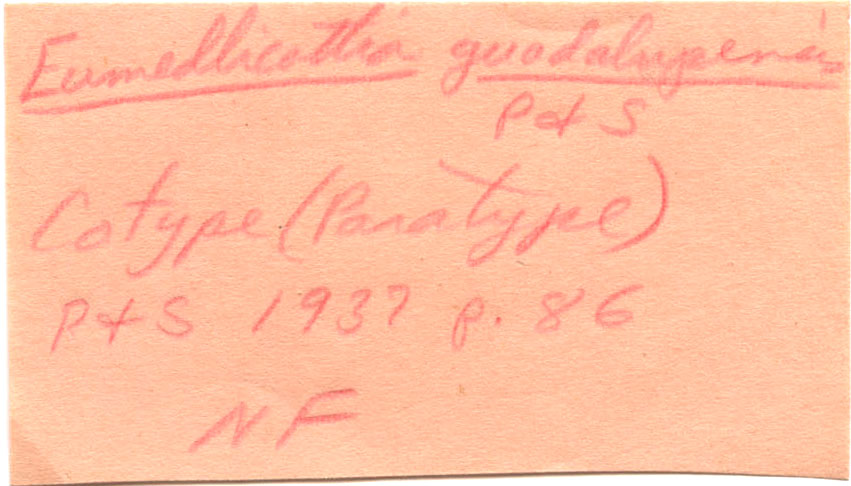 Eumedlicottia guadalupensis
P & S
Cotype (Paratype)
P & S 1937 p. 86
NF